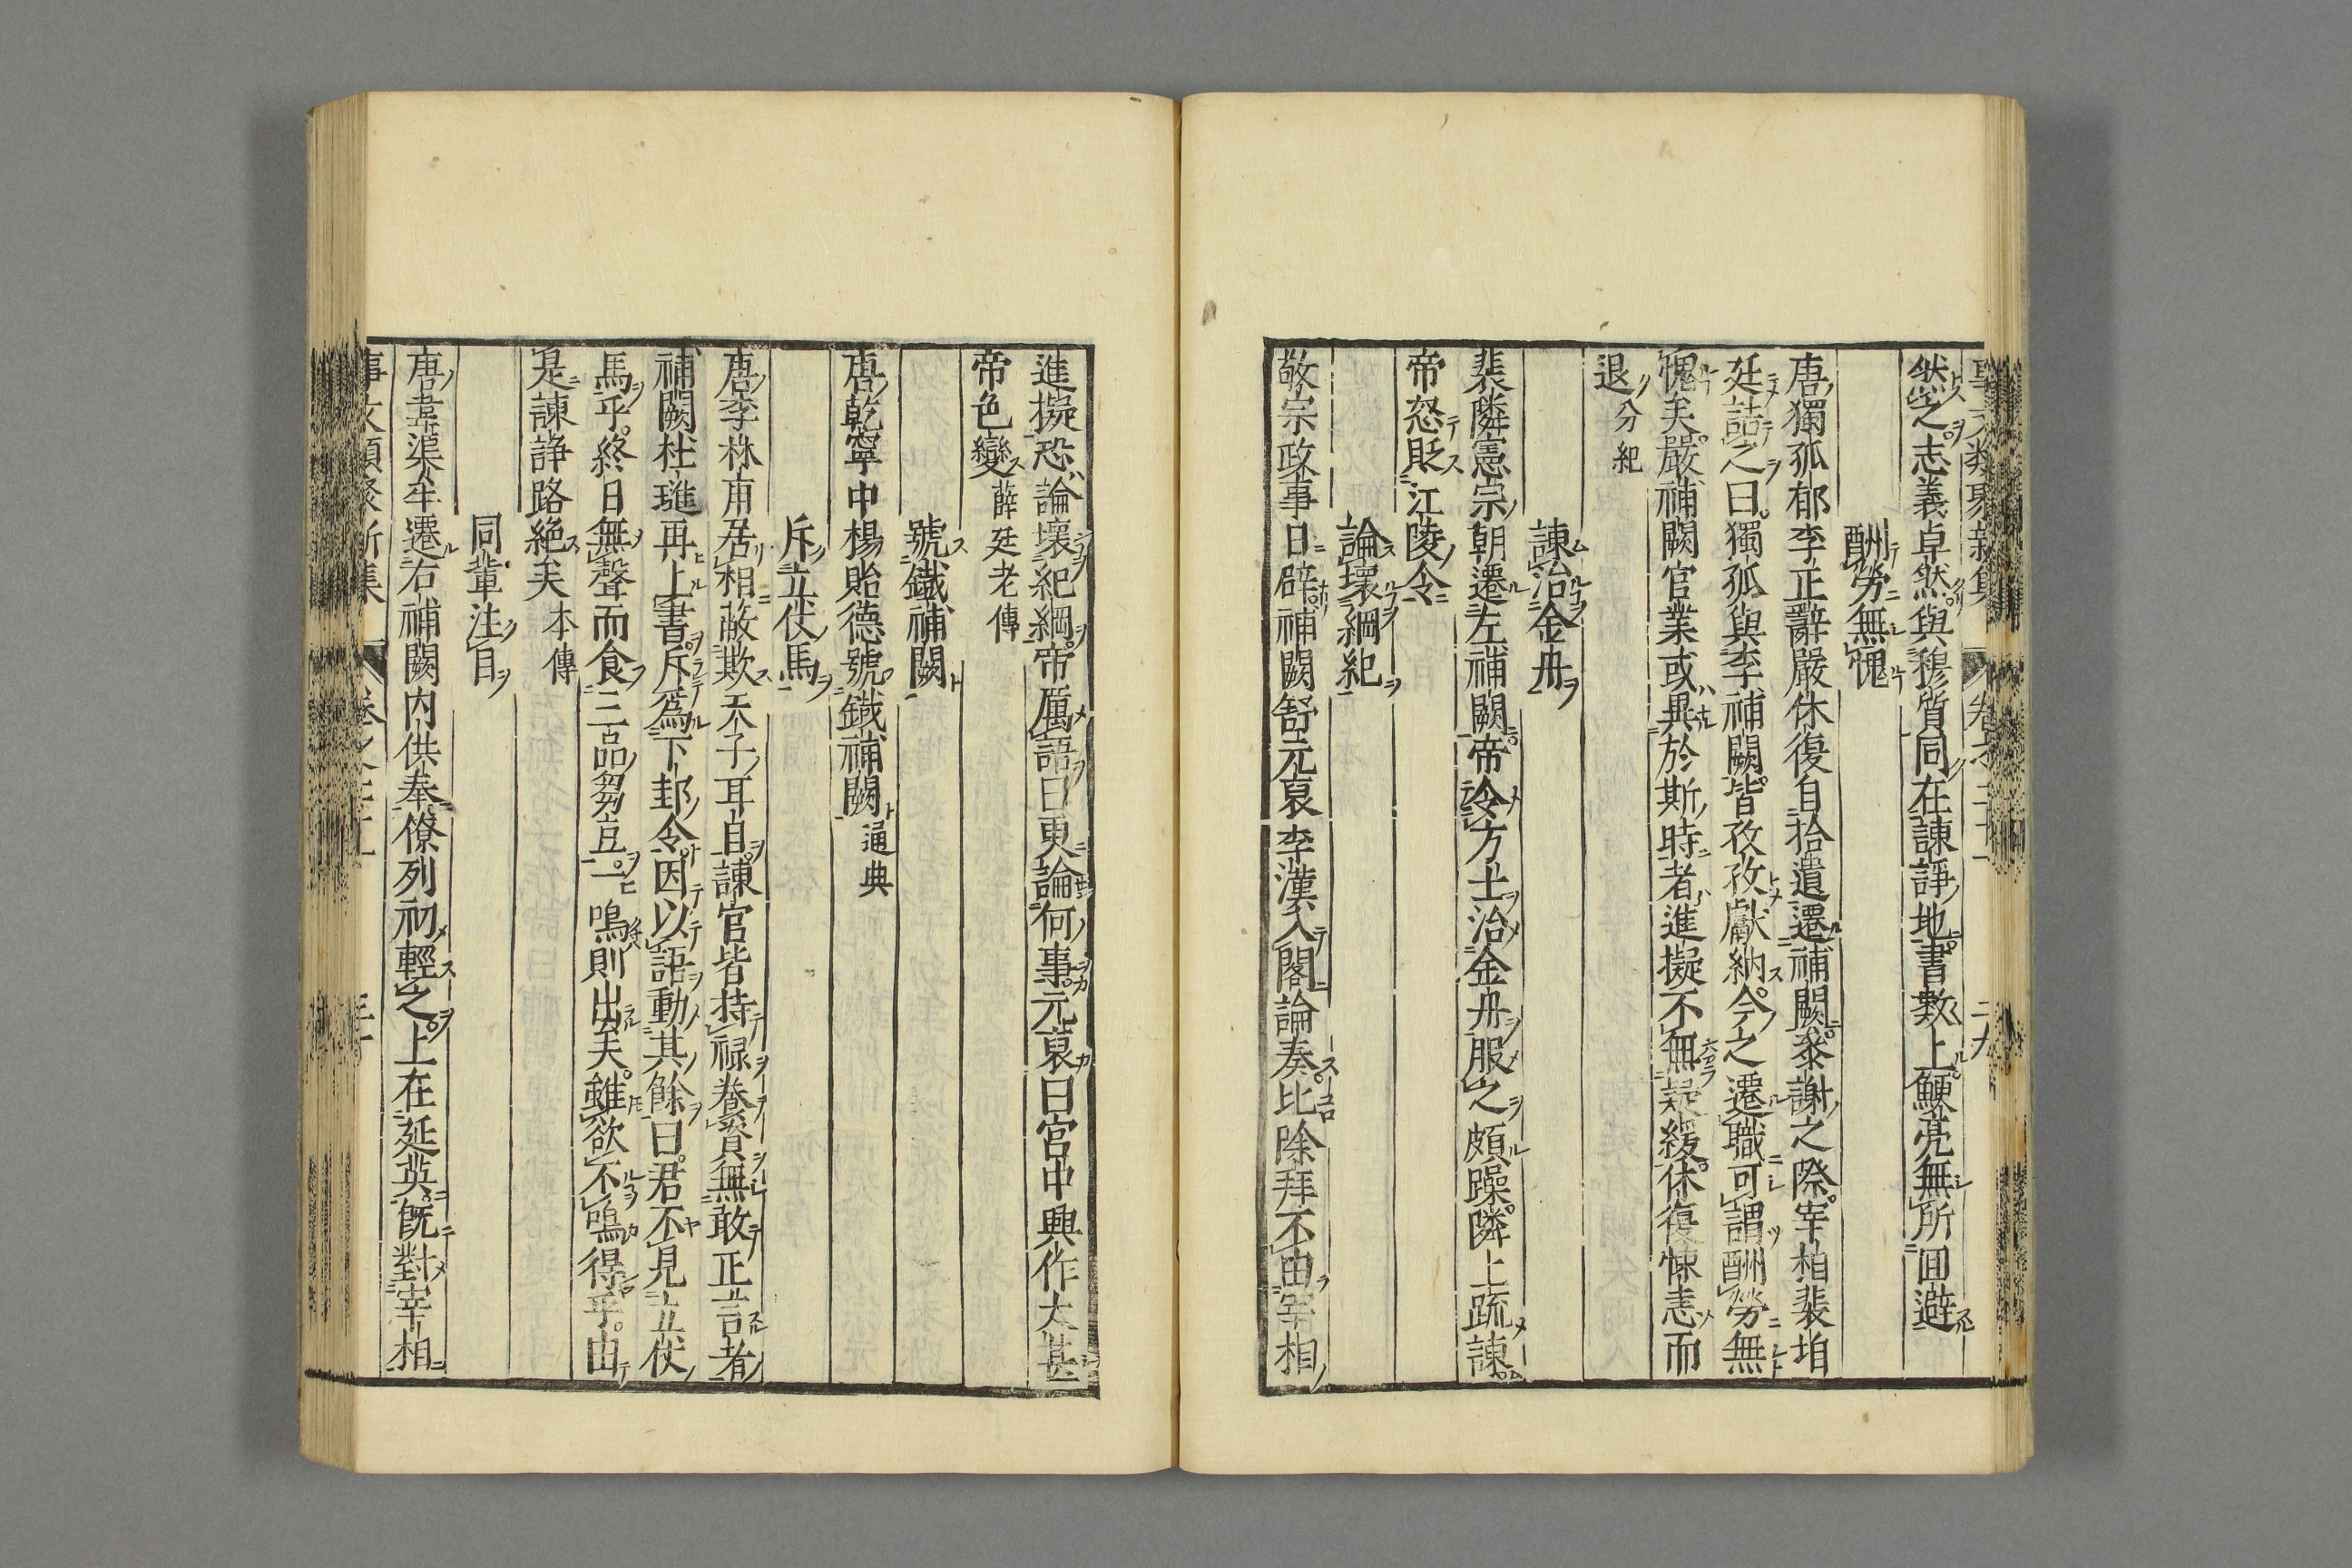 然之志義卓然與穆質同在諫諍地書數上鯁亮無所回避
酬勞無愧
唐獨孤郁李正辭嚴休復自拾遺遷補闕參謝之際宰相裴垍
廷詰之曰獨孤與李補闕皆孜孜獻納今之遷職可謂酬勞無
愧矣嚴補闕官業或異於斯時者進擬不無疑緩休復悚恚而
退分紀
諫治金丹
裴隣憲宗朝遷左補闕帝令方士治金丹服之頗躁隣上疏諫
帝怒貶江陵令
論壞綱紀
敬宗政事日僻補闕舒元褒李漢入閣論奏比除拜不由宰相
進擬恐論壞紀綱帝厲語曰更論何事元褒曰宮中興作太甚
帝色變薛廷老傳
號鐵補闕
唐乾寧中楊貽德號鐵補闕通典
斥立仗馬
唐李林甫居相蔽欺天子耳目諫官皆持祿養資無敢正言者
補闕杜璡再上書斥為下邽令因以語動其餘曰君不見立仗
馬乎終日無聲而食三品芻豆一鳴則出矣雖欲不鳴得乎由
是諫諍路絕矣本傳
同輩注目
唐韋渠牟遷右補闕内供奉僚列初輕之上在延英既對宰相